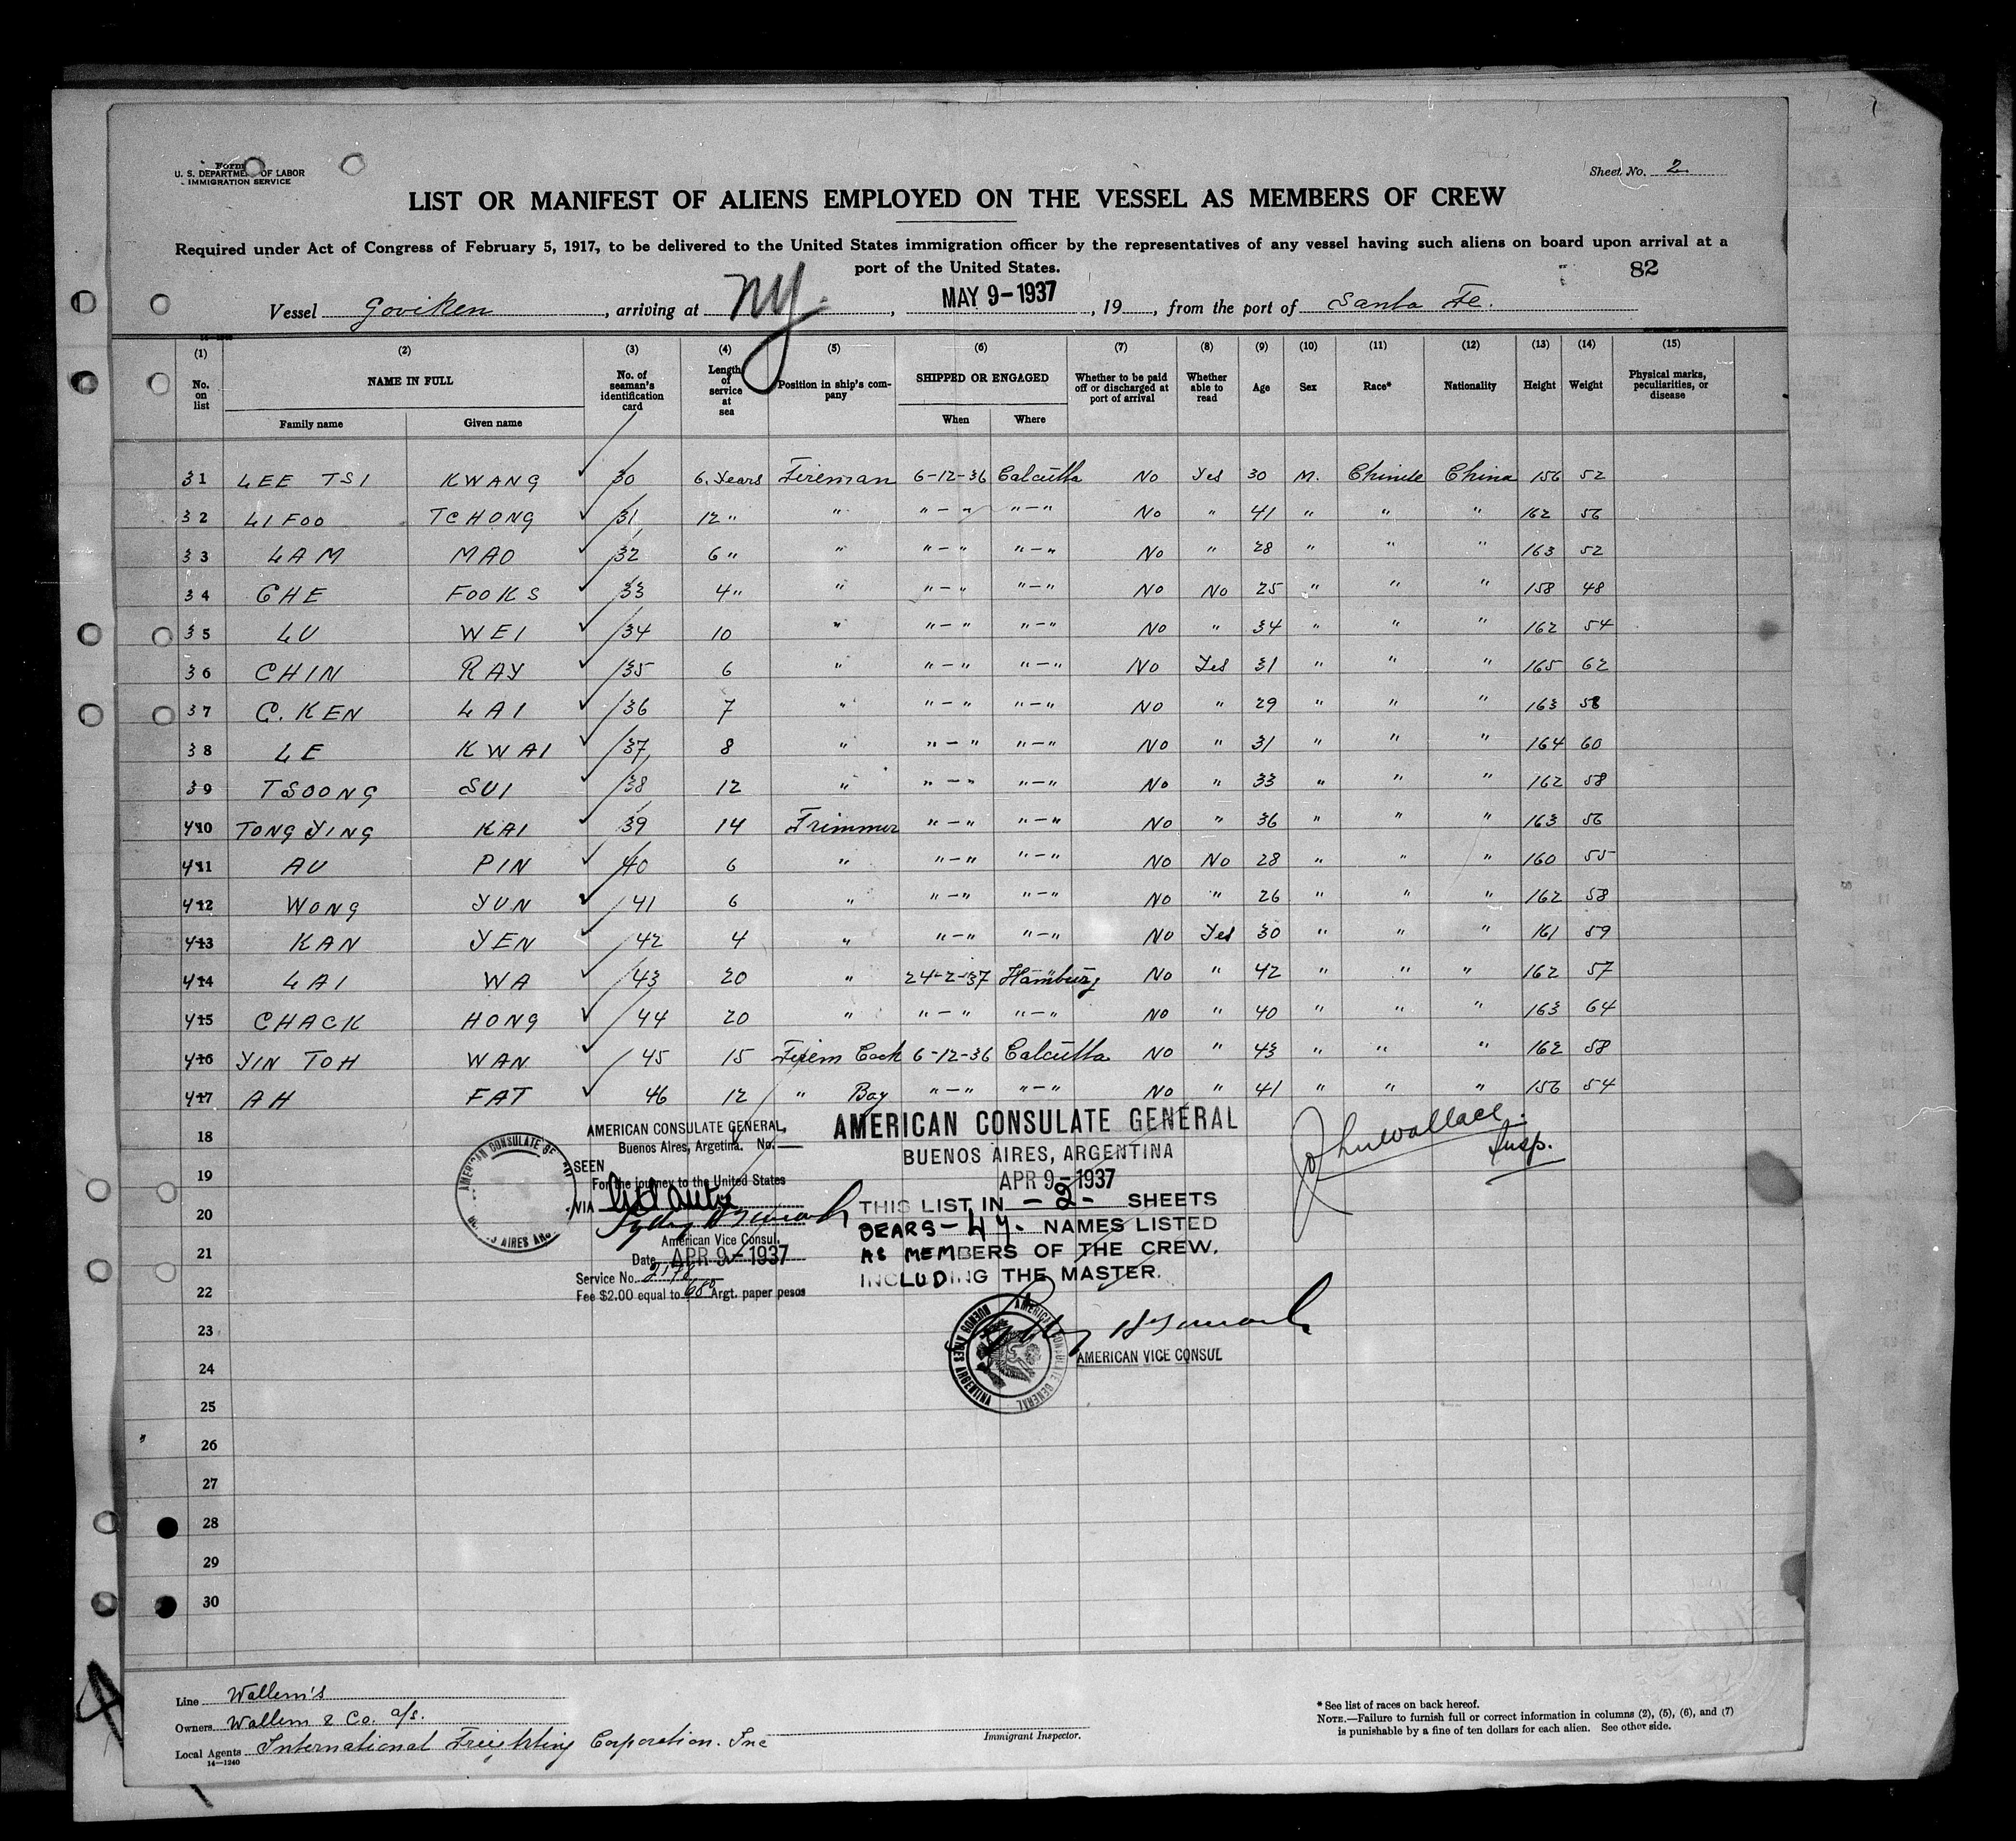 Form
U. S. DEPARTMENT OF LABOR
IMMIGRATION SERVICE
Sheet No. 2
LIST OR MANIFEST OF ALIENS EMPLOYED ON THE VESSEL AS MEMBERS OF CREW
Required under Act of Congress of February 5, 1917, to be delivered to the United States immigration officer by the representatives of any vessel having such aliens on board upon arrival at a
port of the United States.
82
Vessel Goviken, arriving at NY., MAY 9-1937, 19, from the port of Santa Fe.
(1) (2) (3) (4) (5) (6) (7) (8) (9) (10) (11) (12) (13) (14) (15)
No. on list NAME IN FULL Family name Given name No. of seaman's identification card Length of service at sea Position in ship's company SHIPPED OR ENGAGED When Where Whether to be paid off or discharged at port of arrival Whether able to read Age Sex Race* Nationality Height Weight Physical marks, peculiarities, or disease
31 LEE TSI KWANG 30 6. Years Fireman 6-12-36 Calcutta No Yes 30 M. Chinese China 156 52
32 LI FOO TCHONG 31 12 " " " — " " — " No " 41 " " " 162 56
33 LAM MAO 32 6 " " " — " " — " No " 28 " " " 163 52
34 CHE FOOKS 33 4 " " " — " " — " No No 25 " " " 158 48
35 LU WEI 34 10 " " — " " — " No " 34 " " " 162 54
36 CHIN RAY 35 6 " " — " " — " No Yes 31 " " " 165 62
37 C. KEN LAI 36 7 " " — " " — " No " 29 " " " 163 58
38 LE KWAI 37 8 " " — " " — " No " 31 " " " 164 60
39 TSOONG SUI 38 12 " " — " " — " No " 33 " " " 162 58
40 TONG YING KAI 39 14 Trimmer " — " " — " No " 36 " " " 163 56
41 AU PIN 40 6 " " — " " — " No No 28 " " " 160 55
42 WONG YUN 41 6 " " — " " — " No " 26 " " " 162 58
43 KAN YEN 42 4 " " — " " — " No Yes 30 " " " 161 59
44 LAI WA 43 20 " 24-2-37 Hamburg No " 42 " " " 162 57
45 CHACK HONG 44 20 " " — " " — " No " 40 " " " 163 64
46 YIN TOH WAN 45 15 Firem Cook 6-12-36 Calcutta No " 43 " " " 162 58
47 AH FAT 46 12 " Boy " — " " — " No " 41 " " " 156 54
18
19
20
21
22
23
24
25
26
27
28
29
30
AMERICAN CONSULATE GENERAL,
Buenos Aires, Argetina. No. —
SEEN
For the journey to the United States
VIA
American Vice Consul.
Date APR 9-1937
Service No. 2178
Fee $2.00 equal to 680 Argt. paper pesos
AMERICAN CONSULATE GENERAL
BUENOS AIRES, ARGENTINA
APR 9-1937
THIS LIST IN -2- SHEETS
BEARS - 47. NAMES LISTED
AS MEMBERS OF THE CREW,
INCLUDING THE MASTER.
AMERICAN VICE CONSUL
AMERICAN CONSULATE GENERAL BUENOS AIRES ARGENTINA
John Wallace
Insp.
Line Wallem's
Owners Wallem & Co. a/s.
Local Agents International Freighting Corporation. Inc
14—1240
Immigrant Inspector.
* See list of races on back hereof.
NOTE.—Failure to furnish full or correct information in columns (2), (5), (6), and (7)
is punishable by a fine of ten dollars for each alien. See other side.